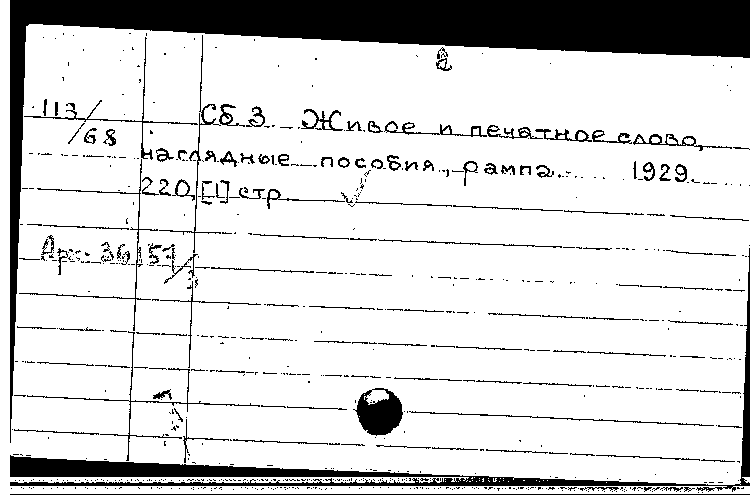 2
113/68 Сб. 3. Живое и печатное слово,
наглядные пособия, рампа. 1929.
220,[1] стр
Арх. 36157/3